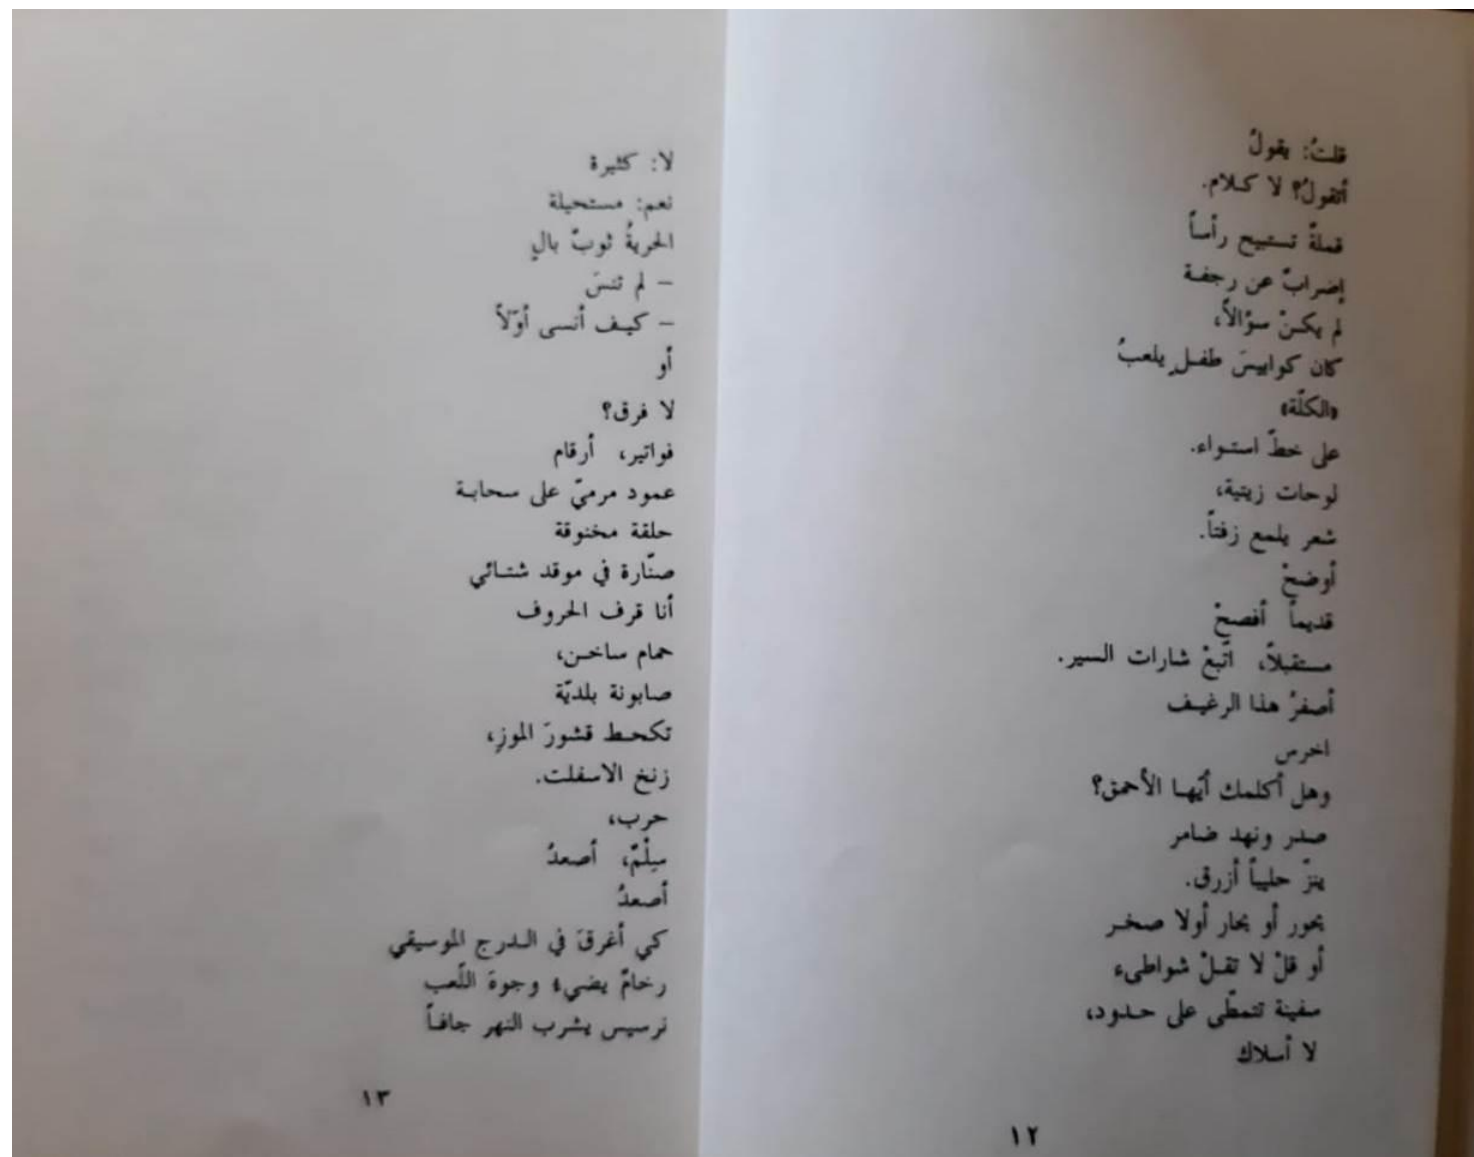 قلتُ: يقولُ
أتقولُ؟ لا كلام.
قملةٌ تستبيح رأساً
إضرابٌ عن رجفة
لم يكنْ سؤالاً،
كان كوابيسَ طفلٍ يلعبُ
«الكلّة»
على خطّ استواء.
لوحات زيتية،
شعر يلمع زفتاً.
أوضحْ
قديماً أفصحْ
مستقبلاً، اتّبعْ شارات السير.
أصفرُ هذا الرغيف
اخرس
وهل أكلمك أيّها الأحمق؟
صدر ونهد ضامر
ينزّ حليباً أزرق.
بحور أو بحار أولا صخر
أو قلْ لا تقلْ شواطىء
سفينة تتمطّى على حدود،
لا أسلاك
١٢
لا: كثيرة
نعم: مستحيلة
الحريةُ ثوبٌ بالٍ
– لم تنسَ
– كيف أنسى أوّلاً
أو
لا فرق؟
فواتير، أرقام
عمود مرميّ على سحابة
حلقة مخنوقة
صنّارة في موقد شتائي
أنا قرف الحروف
حمام ساخن،
صابونة بلديّة
تكحط قشورَ الموزِ،
زنخ الاسفلت.
حرب،
سِلْمٌ، أصعدُ
أصعدُ
كي أغرقَ في الدرج الموسيقي
رخامٌ يضيء وجوهَ اللّعب
نرسيس يشرب النهر جافاً
١٣